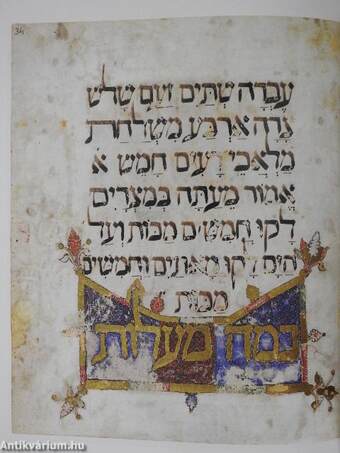 34
עברה שתים וזעם שלש
צרה ארבע משלחת
מלאכי רעים חמש א
אמור מעתה במצרים
לקו חמשים מכות ועל
הים לקו מאתים וחמשים
מכות
כמה מעלות
Antikvárium.hu